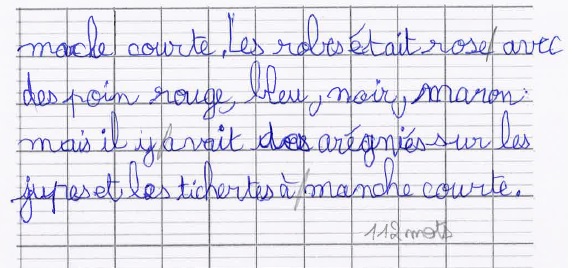 macle courte. Les robes était rose avec
des poin rouge, bleu, noir, maron.
mais il y avait des arégniés sur les
jupes et les tichertes à manche courte.
112 mots